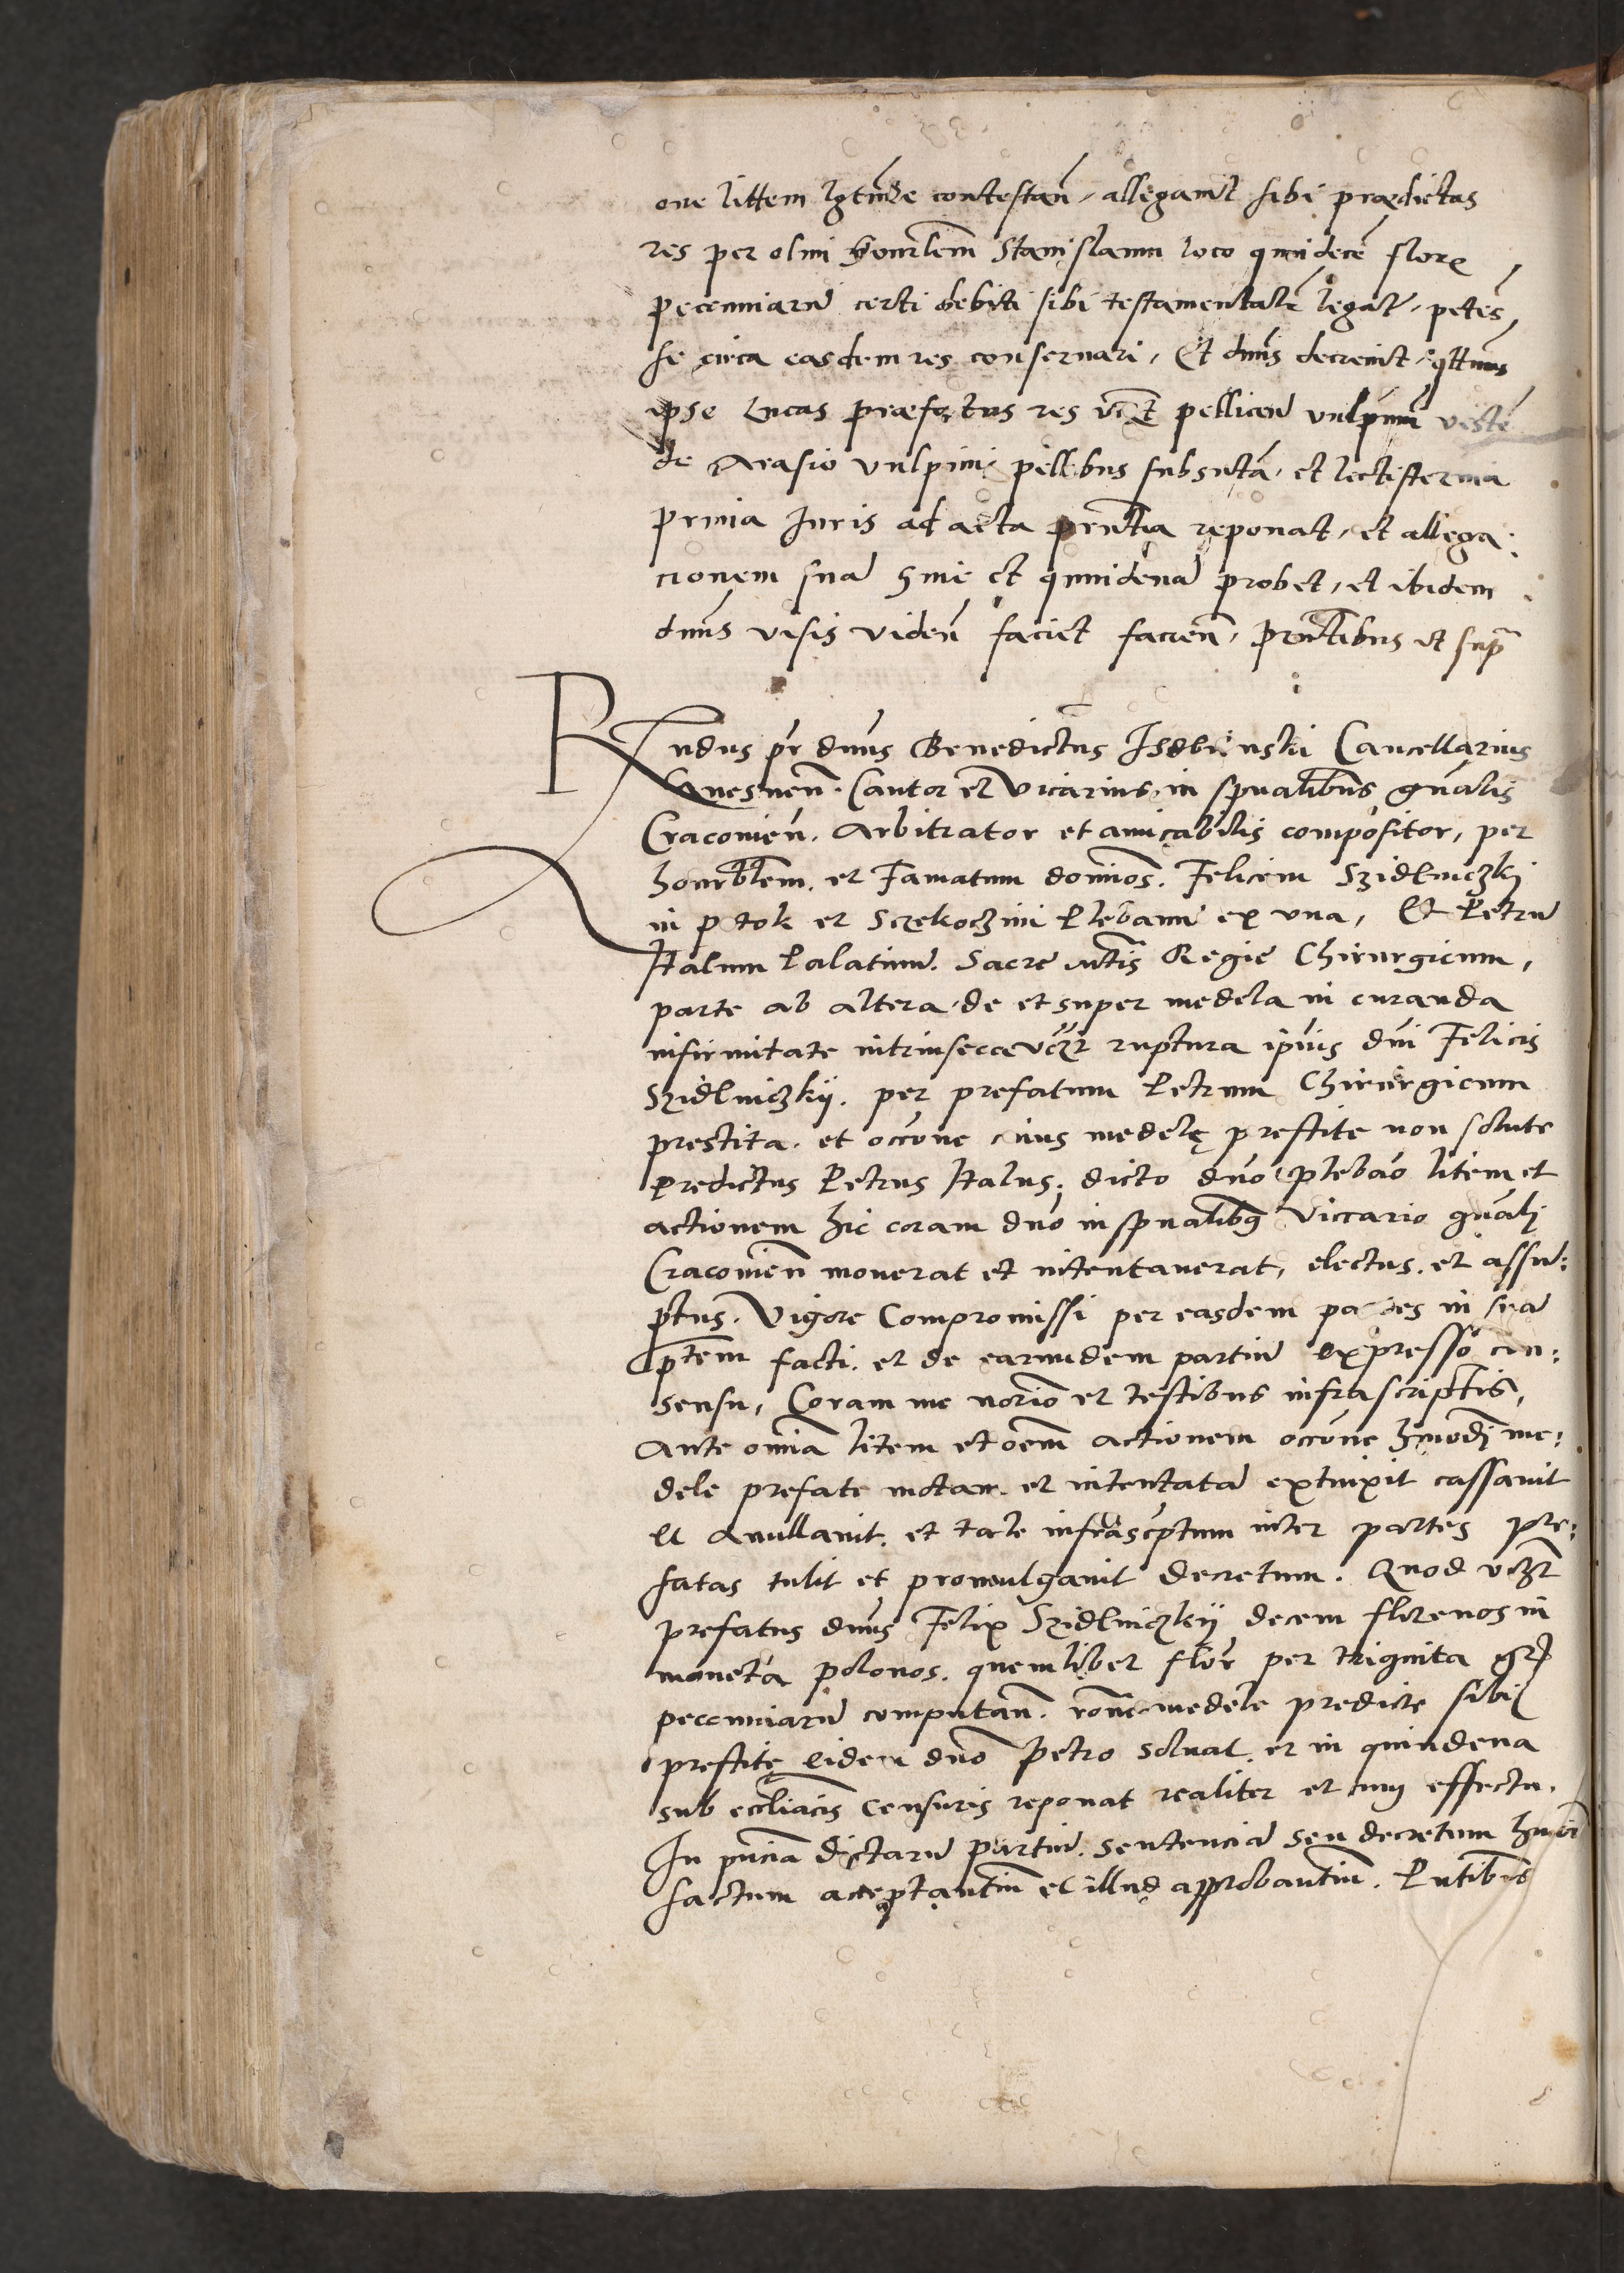 one littem lgtīme contestan̄, allegauit sibi prædictas
res per olim honorlem Stanislaum loco quindecē flore
pecuniarū certi debiti sibi testamentalr̄ legat, petēs,
se circa easdem res conseruari, Et dnūs decreuit, qtīnus
ipse Lucas præfatus res vīczt pelliceū vulpinū vestē
de Arasio vulpinis pellibus subsutā, et lectisternia
prmia Juris ad acta prnt̄ia reponat, et allega:
cionem suā hinc et quindenā probet, et ibidem
dnūs visis viden̄ faciet facien̄, prntībus vt supͣ
Rndus pr̄ dnūs Benedictus Isdbienski Cancellarius
Gnesnen̄. Cantor et Vicarius in spūalibus gnālis
Cracouien̄. Arbitrator et amicabilis compositor, per
honorblem. et Famatum dominos. Felicem Szidlniczkj
in potok et Sczekoczini Plebanū ex vna, Et Petrū
Italum Palatinū. Sacre Mtīs Regie Chirurgicum,
parte ab altera, de et super medela in curanda
infirmitate intrinseca vczt ruptura ipīus dnī Felicis
Szidlniczkij. per prefatum Petrum Chirurgicum
prestita. et occōne cuius medelę prestite non solute
predictus Petrus Italus, dicto dnō plebāo litem et
actionem hic coram dnō in spūalibus Viccario gnālj
Cracouien̄ mouerat et intentauerat, electus. et assu:
ptus. Vigore Compromissi per easdem partes in seā
ptēm facti. et de earumdem partiū expresso con:
sensu, Coram me norīo et testibus infrascriptis,
Ante omīa litem et oēm actionem occōne hmōdj me:
dele prefate motam. et intentatā extinxit cassauit
et Annullauit. et tale infrascptum inter partes pre:
fatas tulit et promulgauit decretum. Quod vczt
prefatus dnūs Felix Szidlniczkij decem florenos in
moneta polonos. quemlibet flor̄ per triginta gr
pecuniarū computan̄. rōne medele predicte sibi
prestitę eidem dnō Petro soluat. et in quindena
sub eccliācis censuris reponat realiter et cum effectu.
In pn̄cia dictarū partiū. Sentenciā seu decretum hmōi
factum acceptantiū et illud approbantiū. Pntībus